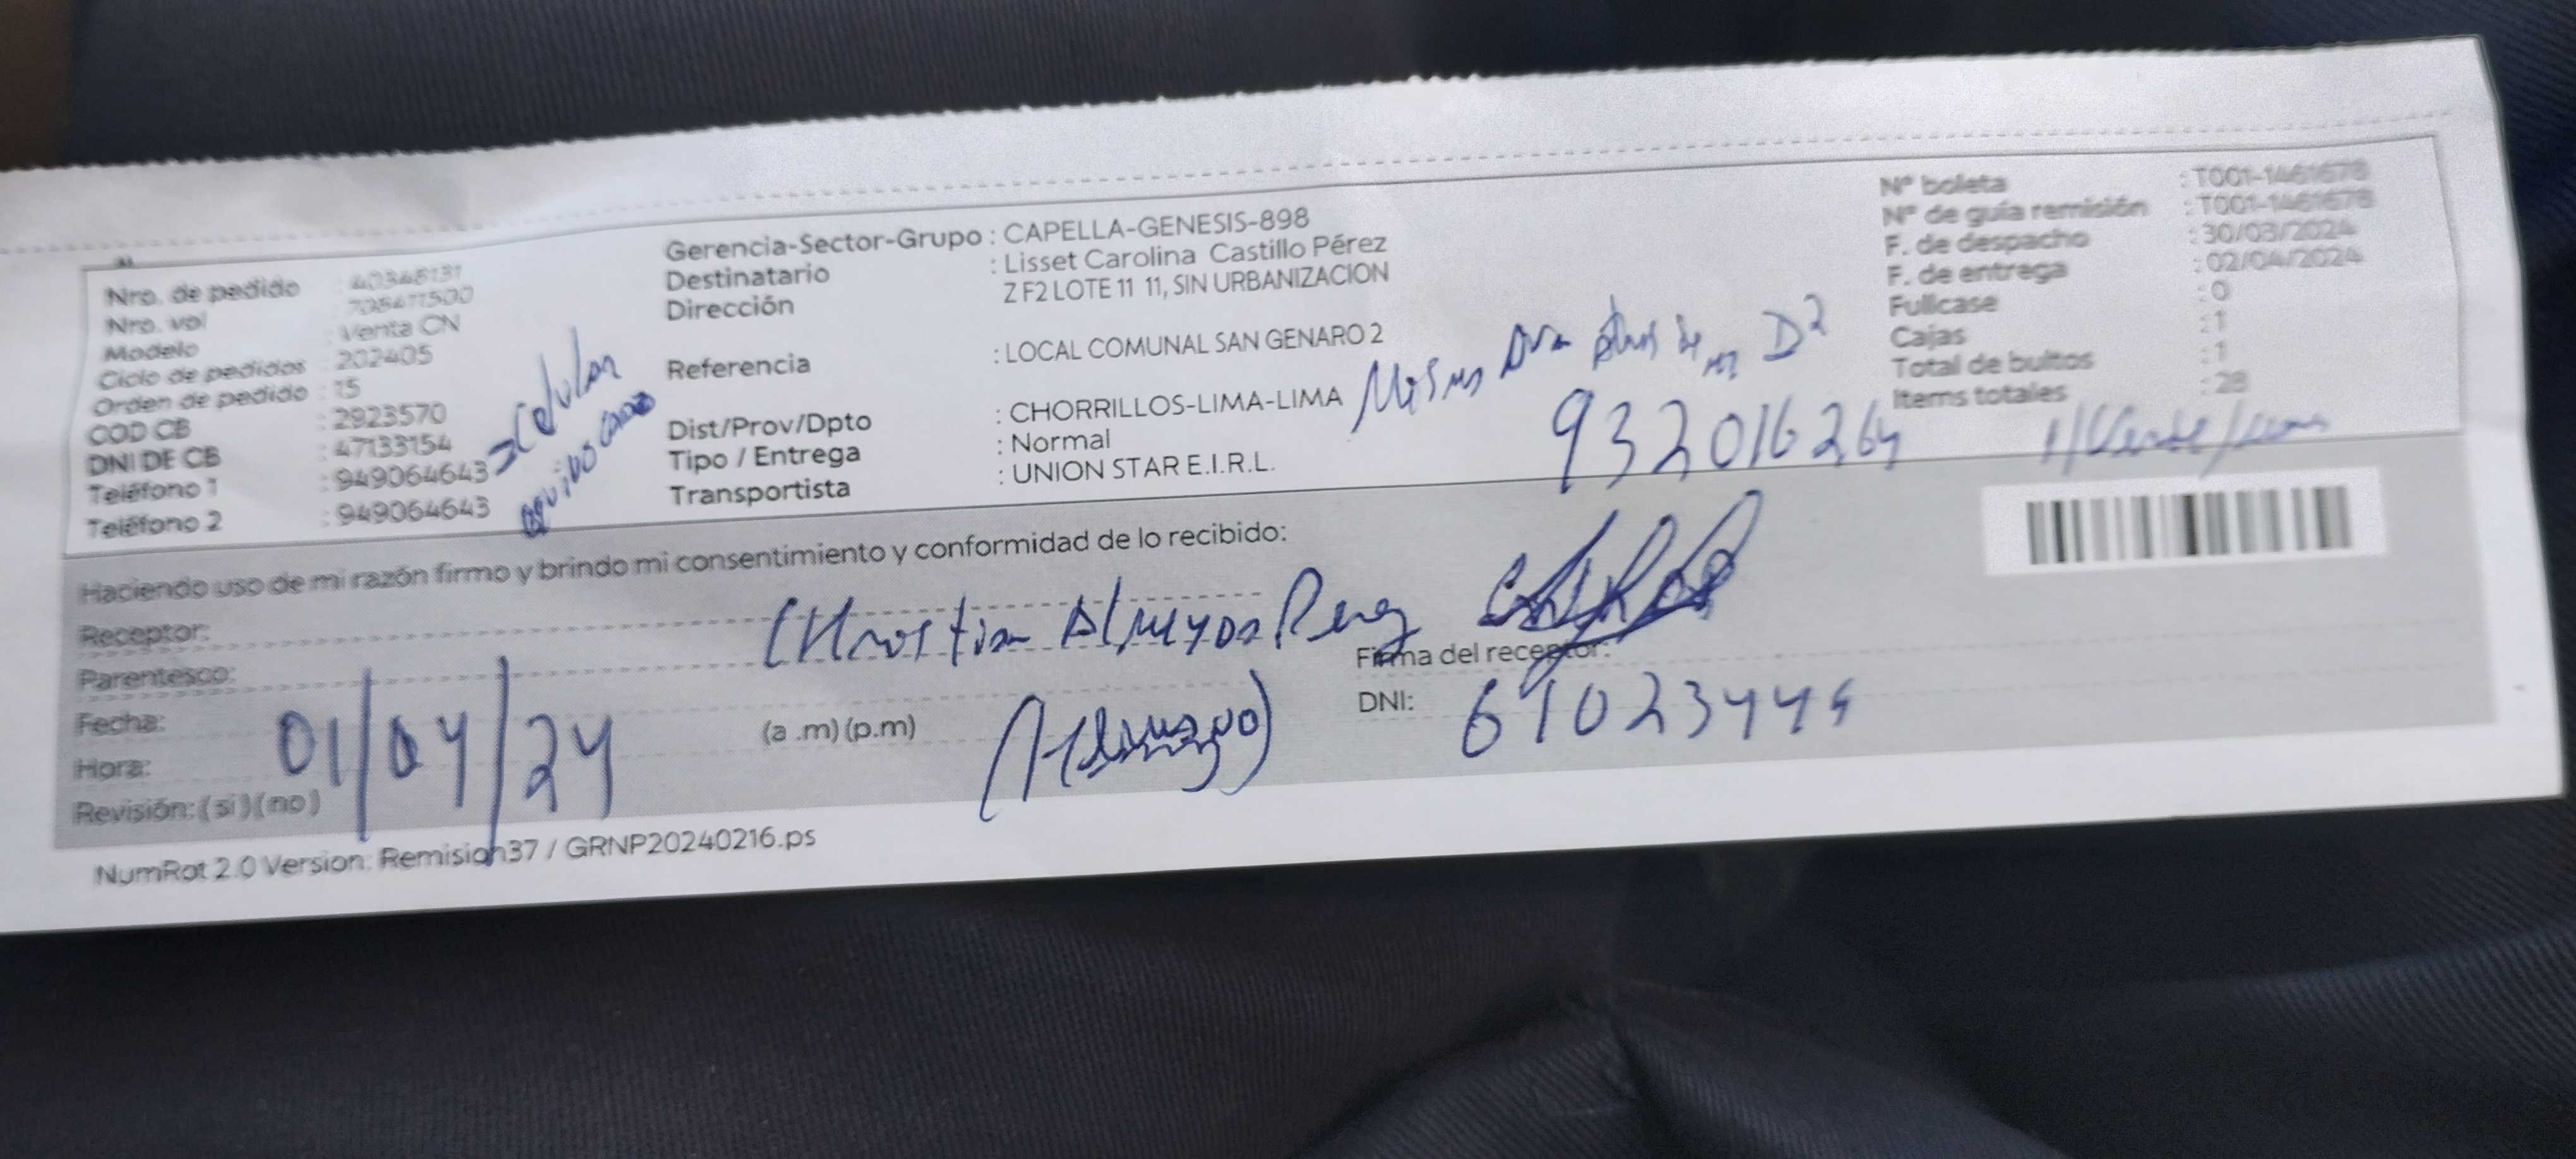 Nro. de pedido : 40348131
Nro. vol : 708411500
Modelo : Venta CN
Ciclo de pedidos : 202405
Orden de pedido : 15
COD CB : 2923570
DNI DE CB : 47133154
Teléfono 1 : 949064643
Teléfono 2 : 949064643
Celular
equivocado
Gerencia-Sector-Grupo : CAPELLA-GENESIS-898
Destinatario : Lisset Carolina Castillo Pérez
Dirección Z F2 LOTE 11 11, SIN URBANIZACION
Referencia : LOCAL COMUNAL SAN GENARO 2
Dist/Prov/Dpto : CHORRILLOS-LIMA-LIMA
Tipo / Entrega : Normal
Transportista : UNION STAR E.I.R.L.
D2
932016264
Nº boleta : T001-1461678
Nº de guía remisión : T001-1461678
F. de despacho : 30/03/2024
F. de entrega : 02/04/2024
Fullcase : 0
Cajas : 1
Total de bultos : 1
Items totales : 28
Haciendo uso de mi razón firmo y brindo mi consentimiento y conformidad de lo recibido:
Receptor:
Perez
Parentesco:
Firma del receptor:
Fecha: 01/04/24
(a .m) (p.m)
DNI:
Hora:
Revisión: (si) (no)
NumRot 2.0 Version: Remision37 / GRNP20240216.ps